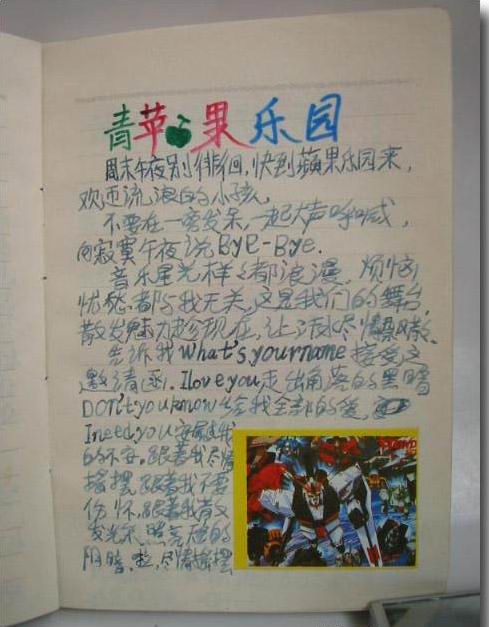 青苹果乐园
周末午夜别徘徊,快到蘋果乐园来,
欢迎流浪的小孩,
不要在一旁发呆,一起大声呼喊,
向寂寞午夜说Bye-Bye.
音乐星光样样都浪漫,烦恼
忧愁都与我无关,这是我们的舞台,
散发魅力趁现在,让汗水尽情
告诉我what's your name接受这
邀请函.I love you走出角落的黑暗
DON't you know给我全部的爱,
I need you安慰我
的不安.跟着我尽情
摇摆,跟着我不要
伤怀,跟着我散发
发光 照亮 的
阴暗.啦,尽情摇摆